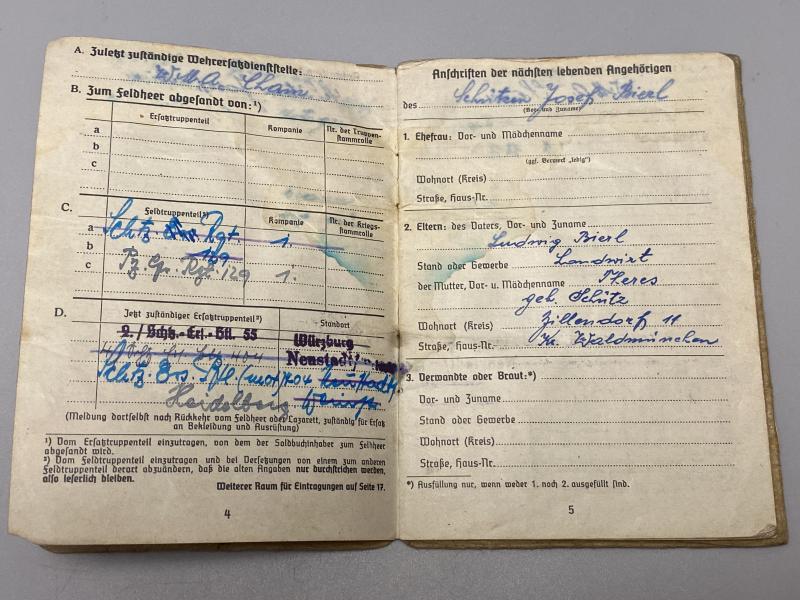 A. Zuletzt zuständige Wehrersatzdienststelle:
W.M.A. Cham
B. Zum Feldheer abgesandt von:¹)
Ersatztruppenteil Kompanie Nr. der Truppen-
stammrolle
a
b
c
C. Feldtruppenteil²) Kompanie Nr. der Kriegs-
stammrolle
a Schtz. Rgt. 1.
b 129
c Pz. Gr. Rgt. 129 1.
D. Jetzt zuständiger Ersatztruppenteil²) Standort
2./Schtz.-Ers.-Btl. 55 Würzburg
Neustadt
Schtz. Ers. Btl. (mot) 104
Heidelberg
(Meldung dortselbst nach Rückkehr vom Feldheer oder Lazarett, zuständig für Ersatz
an Bekleidung und Ausrüstung)
¹) Vom Ersatztruppenteil einzutragen, von dem der Soldbuchinhaber zum Feldheer
abgesandt wird.
²) Vom Feldtruppenteil einzutragen und bei Versetzungen von einem zum anderen
Feldtruppenteil derart abzuändern, daß die alten Angaben nur durchstrichen werden,
also leserlich bleiben.
Weiterer Raum für Eintragungen auf Seite 17.
4
Anschriften der nächsten lebenden Angehörigen
des Schützen Josef Bierl
(Vor- und Zuname)
1. Ehefrau: Vor- und Mädchenname
(ggf. Vermerk „ledig")
Wohnort (Kreis)
Straße, Haus-Nr.
2. Eltern: des Vaters, Vor- und Zuname
Ludwig Bierl
Stand oder Gewerbe Landwirt
der Mutter, Vor- u. Mädchenname Theres
geb. Schütz
Wohnort (Kreis) Zillendorf 11
Straße, Haus-Nr. Kr. Waldmünchen
3. Verwandte oder Braut:*)
Vor- und Zuname
Stand oder Gewerbe
Wohnort (Kreis)
Straße, Haus-Nr.
*) Ausfüllung nur, wenn weder 1. noch 2. ausgefüllt sind.
5